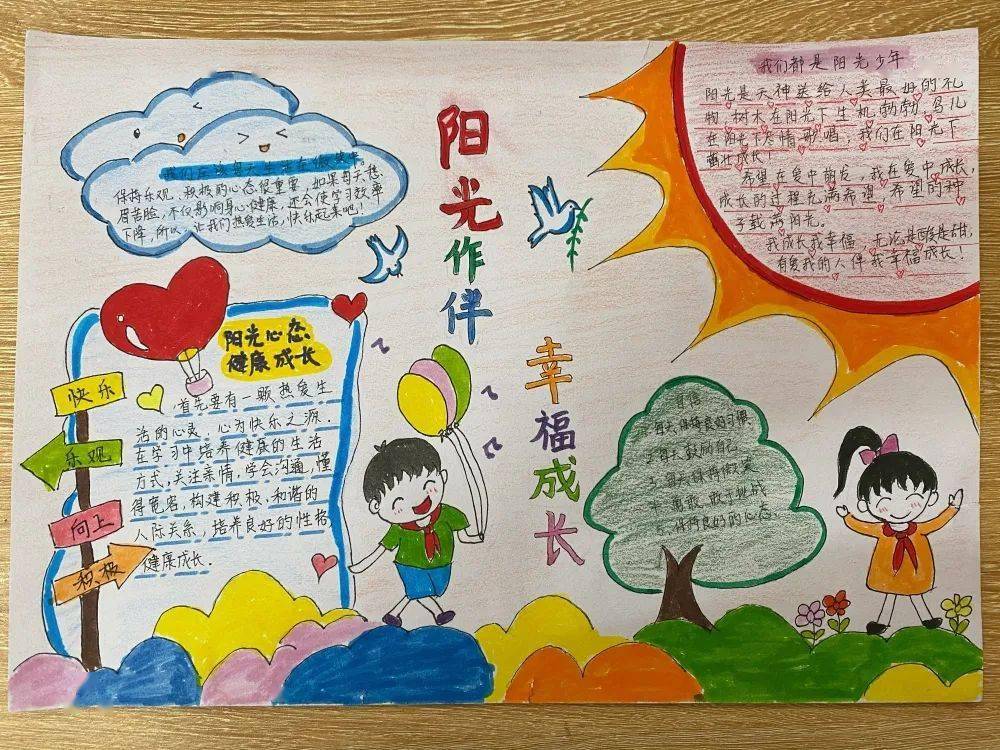 阳光作伴
幸福成长
我们应该每天生活在微笑中。
保持乐观、积极的心态很重要，如果每天愁
眉苦脸，不仅影响身心健康，还会使学习效率
下降，所以，让我们热爱生活，快乐起来吧！
阳光心态
健康成长
首先要有一颗热爱生
活的心灵，心为快乐之源．
在学习中培养健康的生活
方式，关注亲情，学会沟通，懂
得宽容，构建积极、和谐的
人际关系，培养良好的性格，
健康成长．
快乐
乐观
向上
积极
我们都是阳光少年
阳光是天神送给人类最好的礼
物，树木在阳光下生机勃勃，鸟儿
在阳光下尽情歌唱，我们在阳光下
茁壮成长！
希望在爱中萌发，我在爱中成长，
成长的过程充满希望，希望的种
子载满阳光。
我成长我幸福，无论是酸是甜，
有爱我的人伴我幸福成长！
自信
每天保持良好习惯
2.每天鼓励自己
3.每天保持微笑
勇敢，敢于挑战
保持良好的心态．